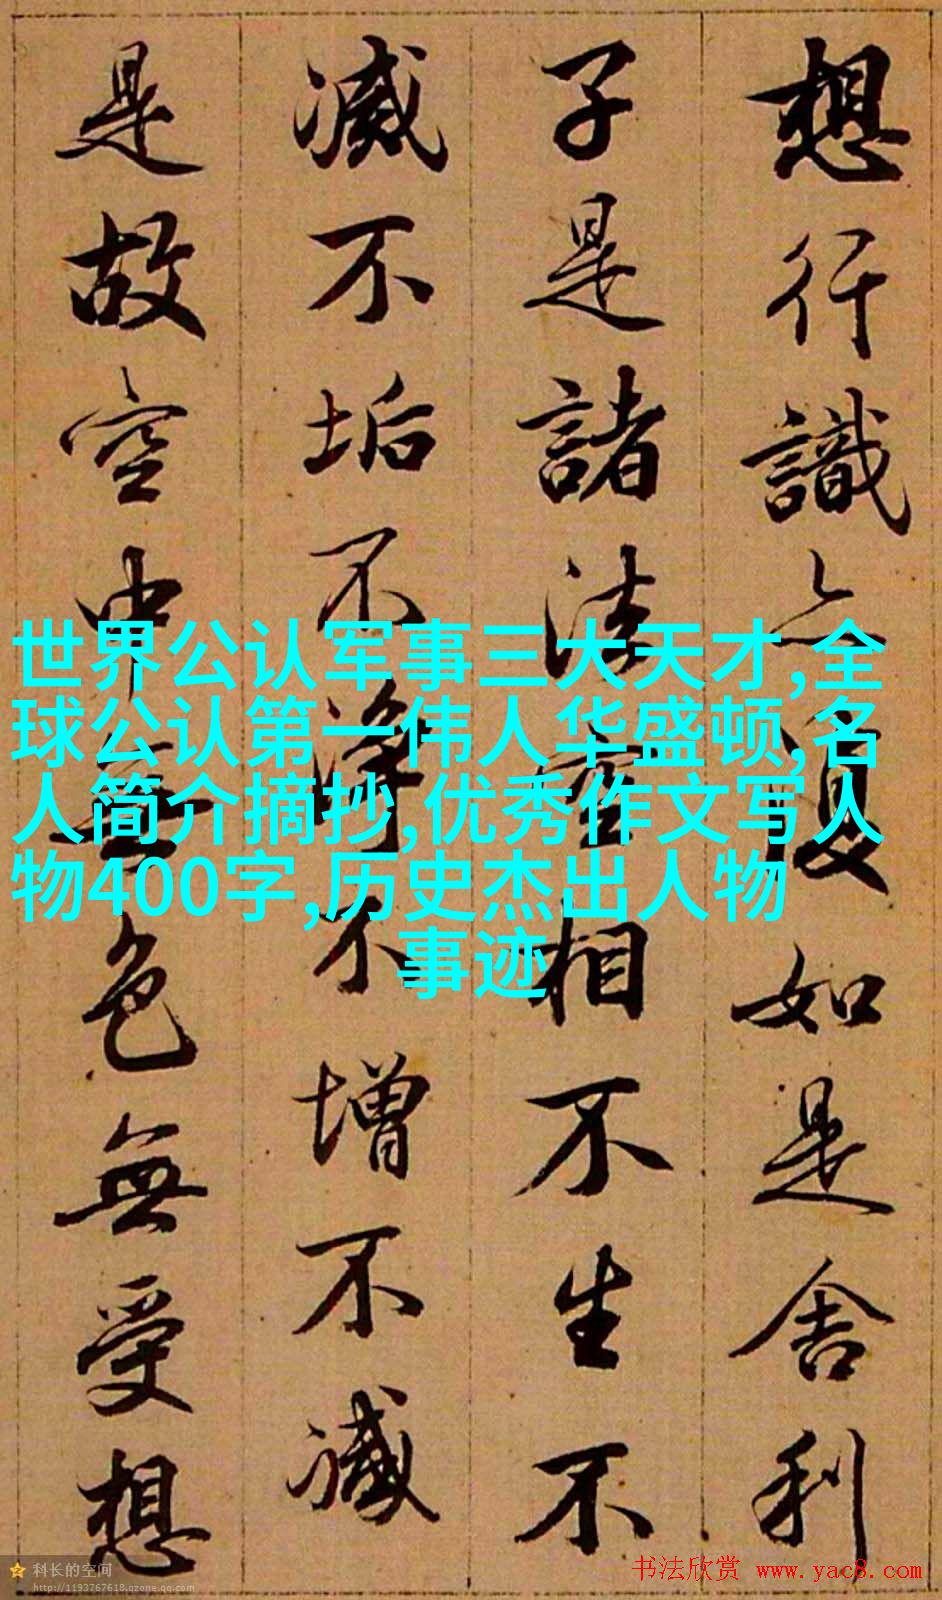 想行識亦復如是舍利
子是諸法空相不生不
滅不垢不淨不增不減
是故空中無色無受想
世界公认军事三大天才,全
球公认第一伟人华盛顿,名
人简介摘抄,优秀作文写人
物400字,历史杰出人物
事迹
科长的空间
http://1193767618.qzone.qq.com
书法欣赏 www.yac8.com